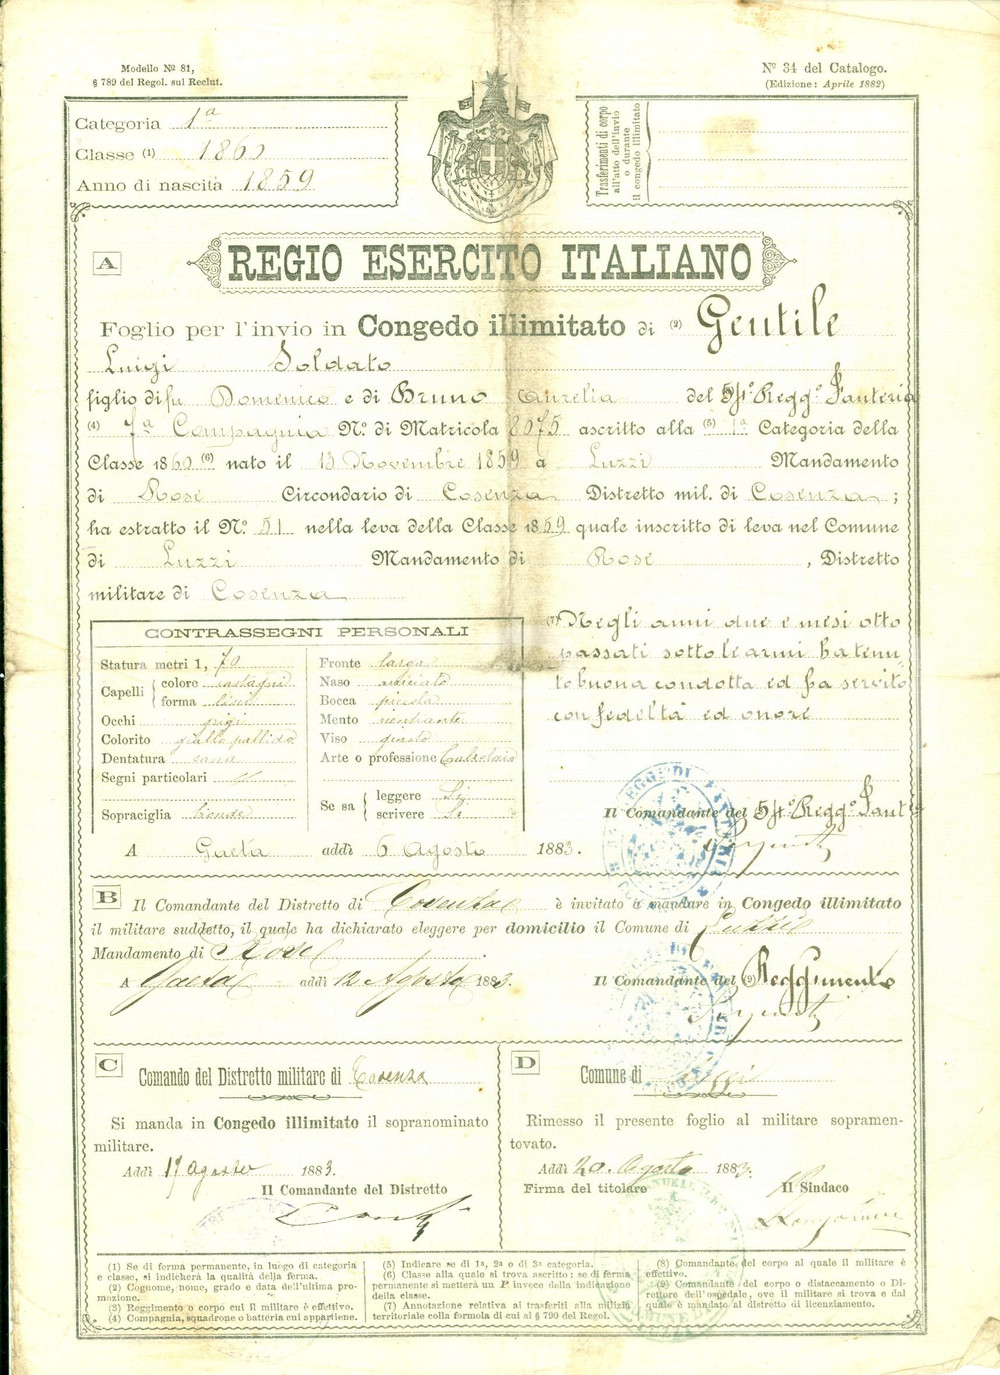 Modello Nº 81,
§ 789 del Regol. sul Reclut.
Nº 34 del Catalogo.
(Edizione: Aprile 1882)
Categoria 1ª
Classe (1) 1860
Anno di nascita 1859
Trasferimenti di corpo
all'atto dell'invio
o durante
il congedo illimitato
A
REGIO ESERCITO ITALIANO
Foglio per l'invio in Congedo illimitato di (2) Gentile
Luigi Soldato
figlio di fu Domenico e di Bruno Aurelia del 54º Reggº Fanteria
(4) 7ª Compagnia Nº. di Matricola 8075 ascritto alla (5) 1ª Categoria della
Classe 1860 (6) nato il 13 Novembre 1859 a Luzzi Mandamento
di Rose Circondario di Cosenza Distretto mil. di Cosenza ;
ha estratto il Nº. 51 nella leva della Classe 1859 quale inscritto di leva nel Comune
di Luzzi Mandamento di Rose , Distretto
militare di Cosenza
CONTRASSEGNI PERSONALI
Statura metri 1, 70
Capelli colore castagni
forma lisci
Occhi grigi
Colorito giallo pallido
Dentatura sana
Segni particolari //
Sopraciglia bionde
Fronte larga
Naso
Bocca piccola
Mento rientrante
Viso giusto
Arte o professione Calzolaio
Se sa leggere Si
scrivere Si
(7) Negli anni due e mesi otto
passati sotto le armi ha tenu-
to buona condotta ed ha servito
con fedeltà ed onore
Il Comandante del 54º Reggº Fantª
A Gaeta addì 6 Agosto 1883.
B Il Comandante del Distretto di Cosenza è invitato a mandare in Congedo illimitato
il militare suddetto, il quale ha dichiarato eleggere per domicilio il Comune di Luzzi
Mandamento di Rose .
A Gaeta addì 12 Agosto 1883.
Il Comandante del (9) Reggimento
C
Comando del Distretto militare di Cosenza
Si manda in Congedo illimitato il sopranominato
militare.
Addì 17 Agosto 1883.
Il Comandante del Distretto
D
Comune di Luzzi
Rimesso il presente foglio al militare sopramen-
tovato.
Addì 20 Agosto 1883.
Firma del titolare Il Sindaco
(1) Se di ferma permanente, in luogo di categoria
e classe, si indicherà la qualità della ferma.
(2) Cognome, nome, grado e data dell'ultima pro-
mozione.
(3) Reggimento o corpo cui il militare è effettivo.
(4) Compagnia, squadrone o batteria cui appartiene.
(5) Indicare se di 1ª, 2ª o di 3ª categoria.
(6) Classe alla quale si trova ascritto: se di ferma
permanente si metterà un P invece della indicazione
della classe.
(7) Annotazione relativa ai trasferiti alla milizia
territoriale colla formola di cui al § 790 del Regol.
(8) Comandante del corpo al quale il militare è
effettivo.
(9) Comandante del corpo o distaccamento o Di-
rettore dell'ospedale, ove il militare si trova e dal
quale è mandato al distretto di licenziamento.